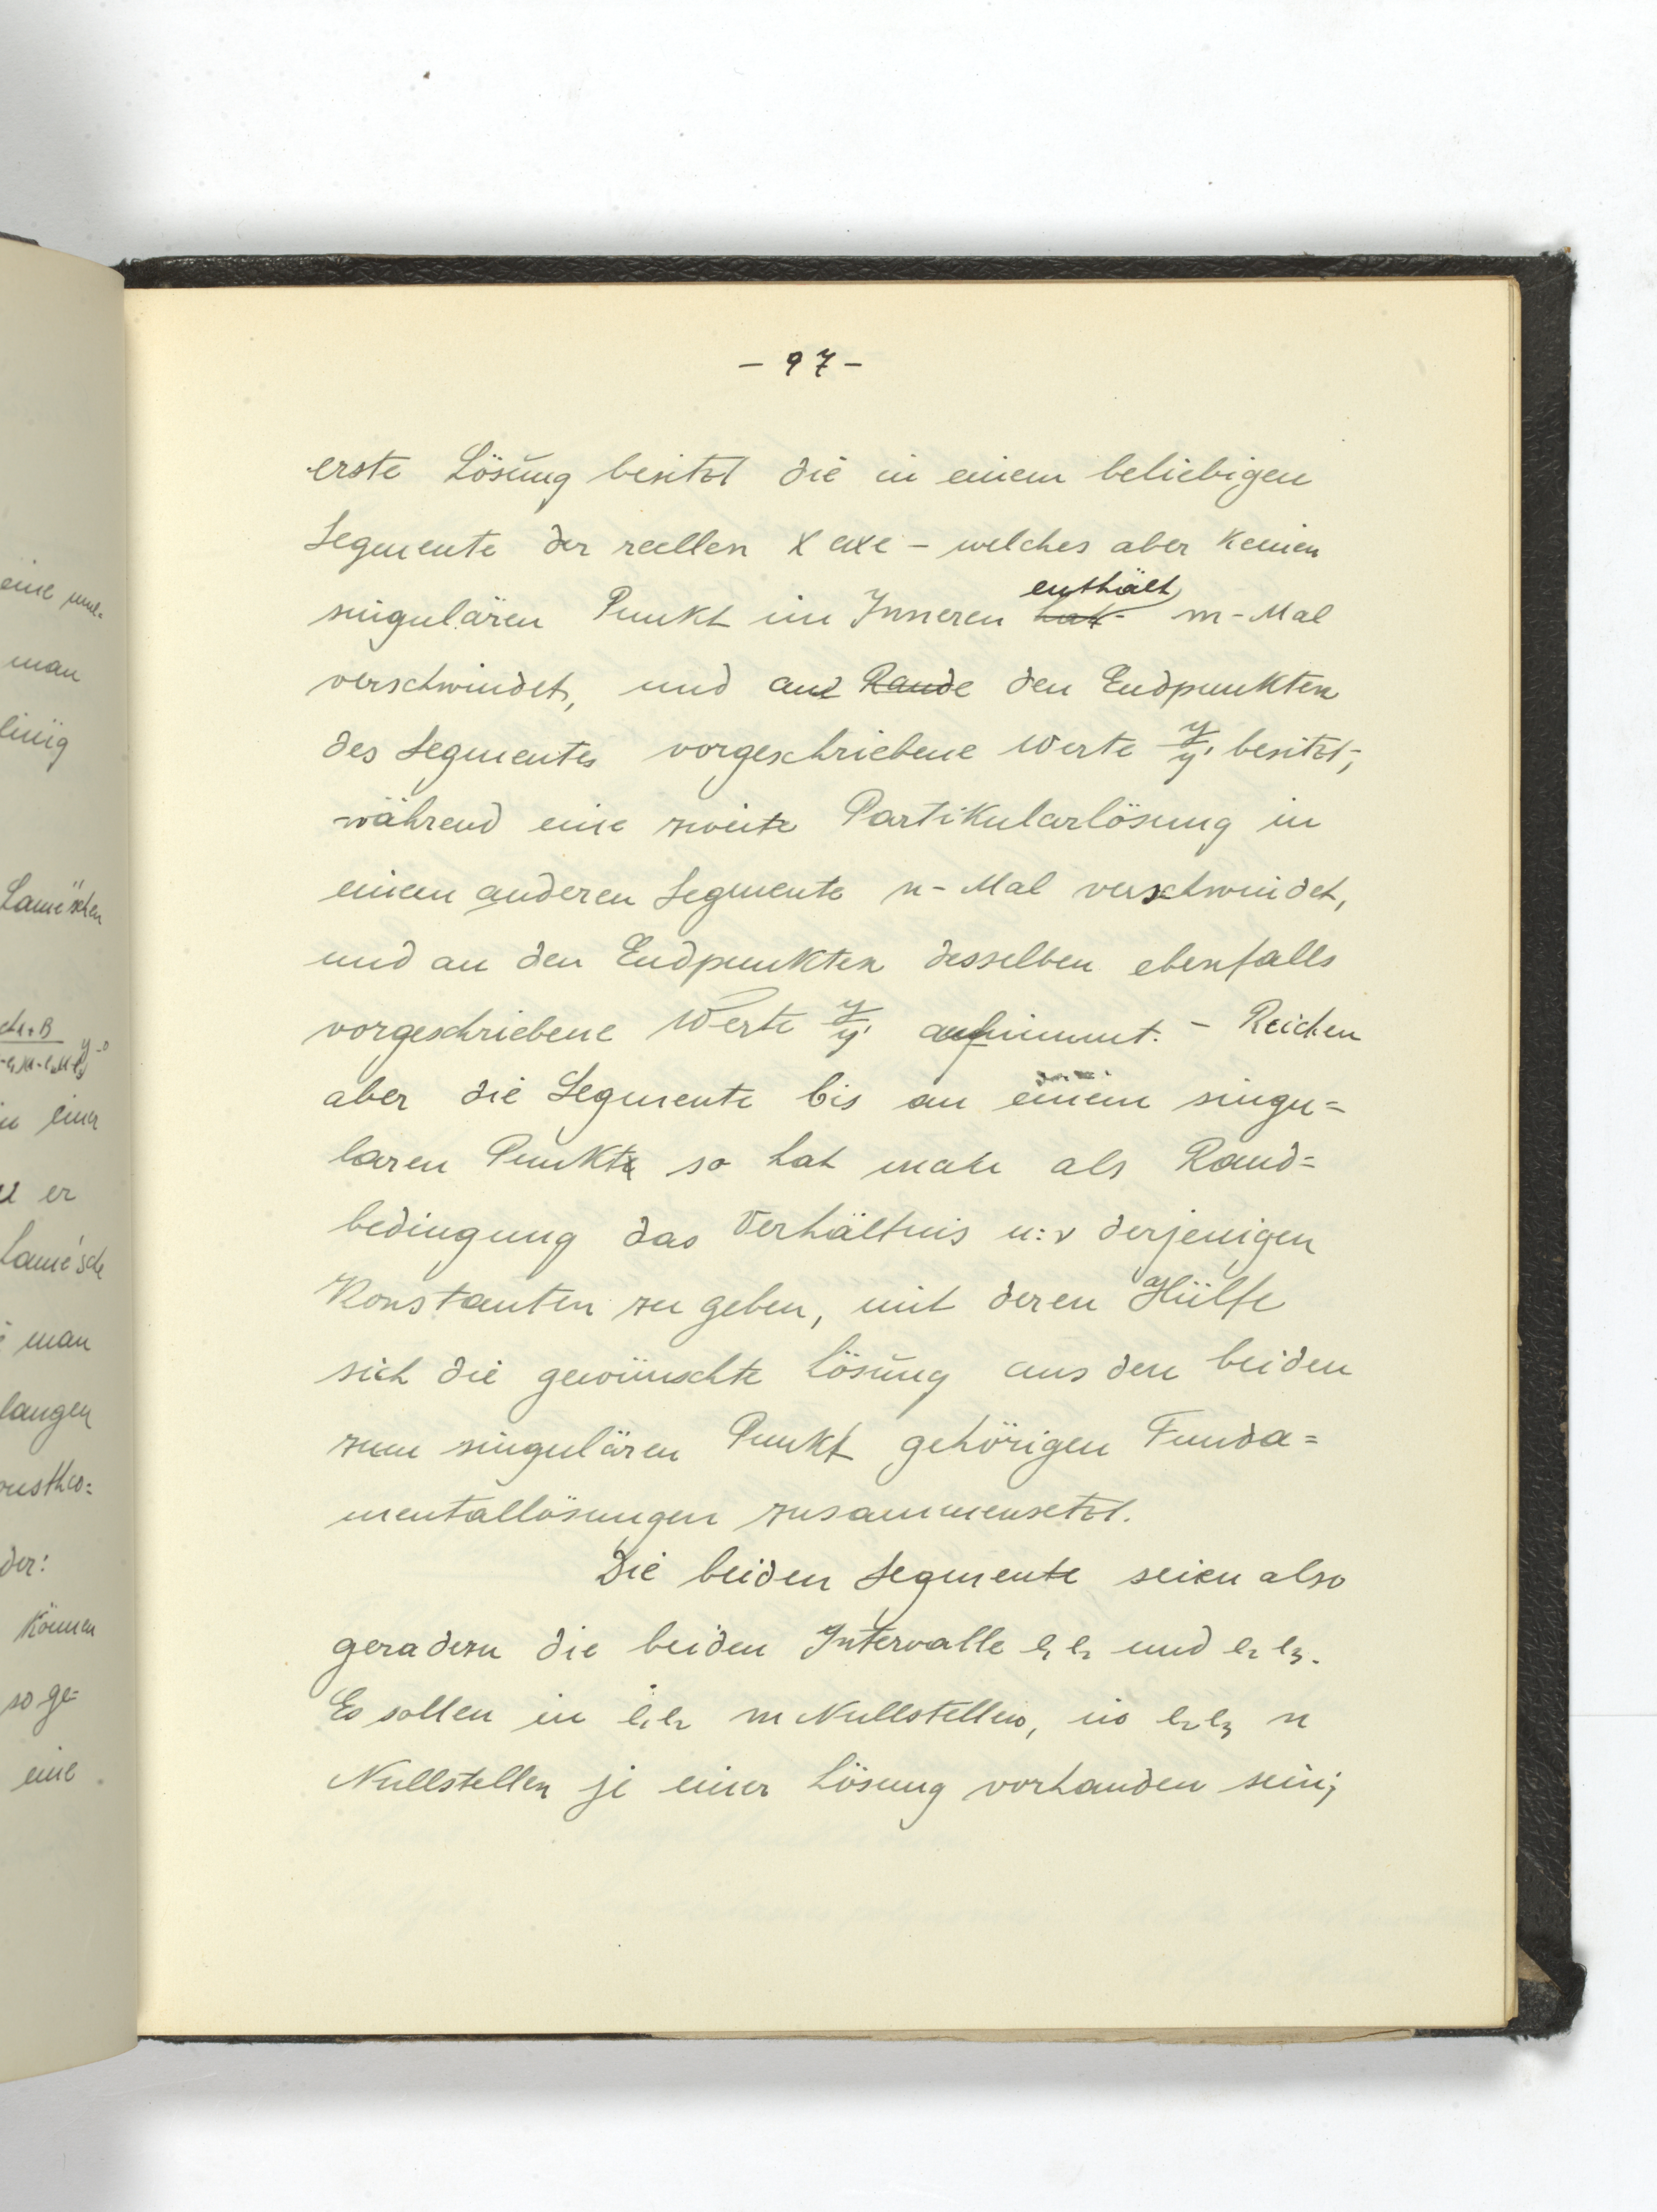 - 97 -
erste Lösung besitzt die in einem beliebigen
Segmente der reellen x axe - welches aber keinen
enthält
singulären Punkt im Inneren hat - m-Mal
verschwindet, und am Rande den Endpunkten
des Segmentes vorgeschriebene Werte y/y' besitzt;
während eine zweite Partikularlösung in
einem anderen Segmente n-Mal verschwindet,
und an den Endpunkten desselben ebenfalls
vorgeschriebene Werte y/y' annimmt. - Reichen
aber die Segmente bis an einem singu=
laren Punkte so hat man als Rand=
bedingung das Verhältnis u:v derjenigen
Konstanten zu geben, mit deren Hülfe
sich die gewünschte Lösung aus den beiden
zum singulären Punkt gehörigen Funda=
mentallösungen zusammensetzt.
Die beiden Segmente seien also
geradezu die beiden Intervalle e₁ e₂ und e₂ e₃.
Es sollen in e₁e₂ m Nullstellen, in e₂e₃ n
Nullstellen je einer Lösung vorhanden sein;
eine
man
Lamé'schen
in einer
er
Lamé'sche
man
langen
der:
können
so ge=
eine